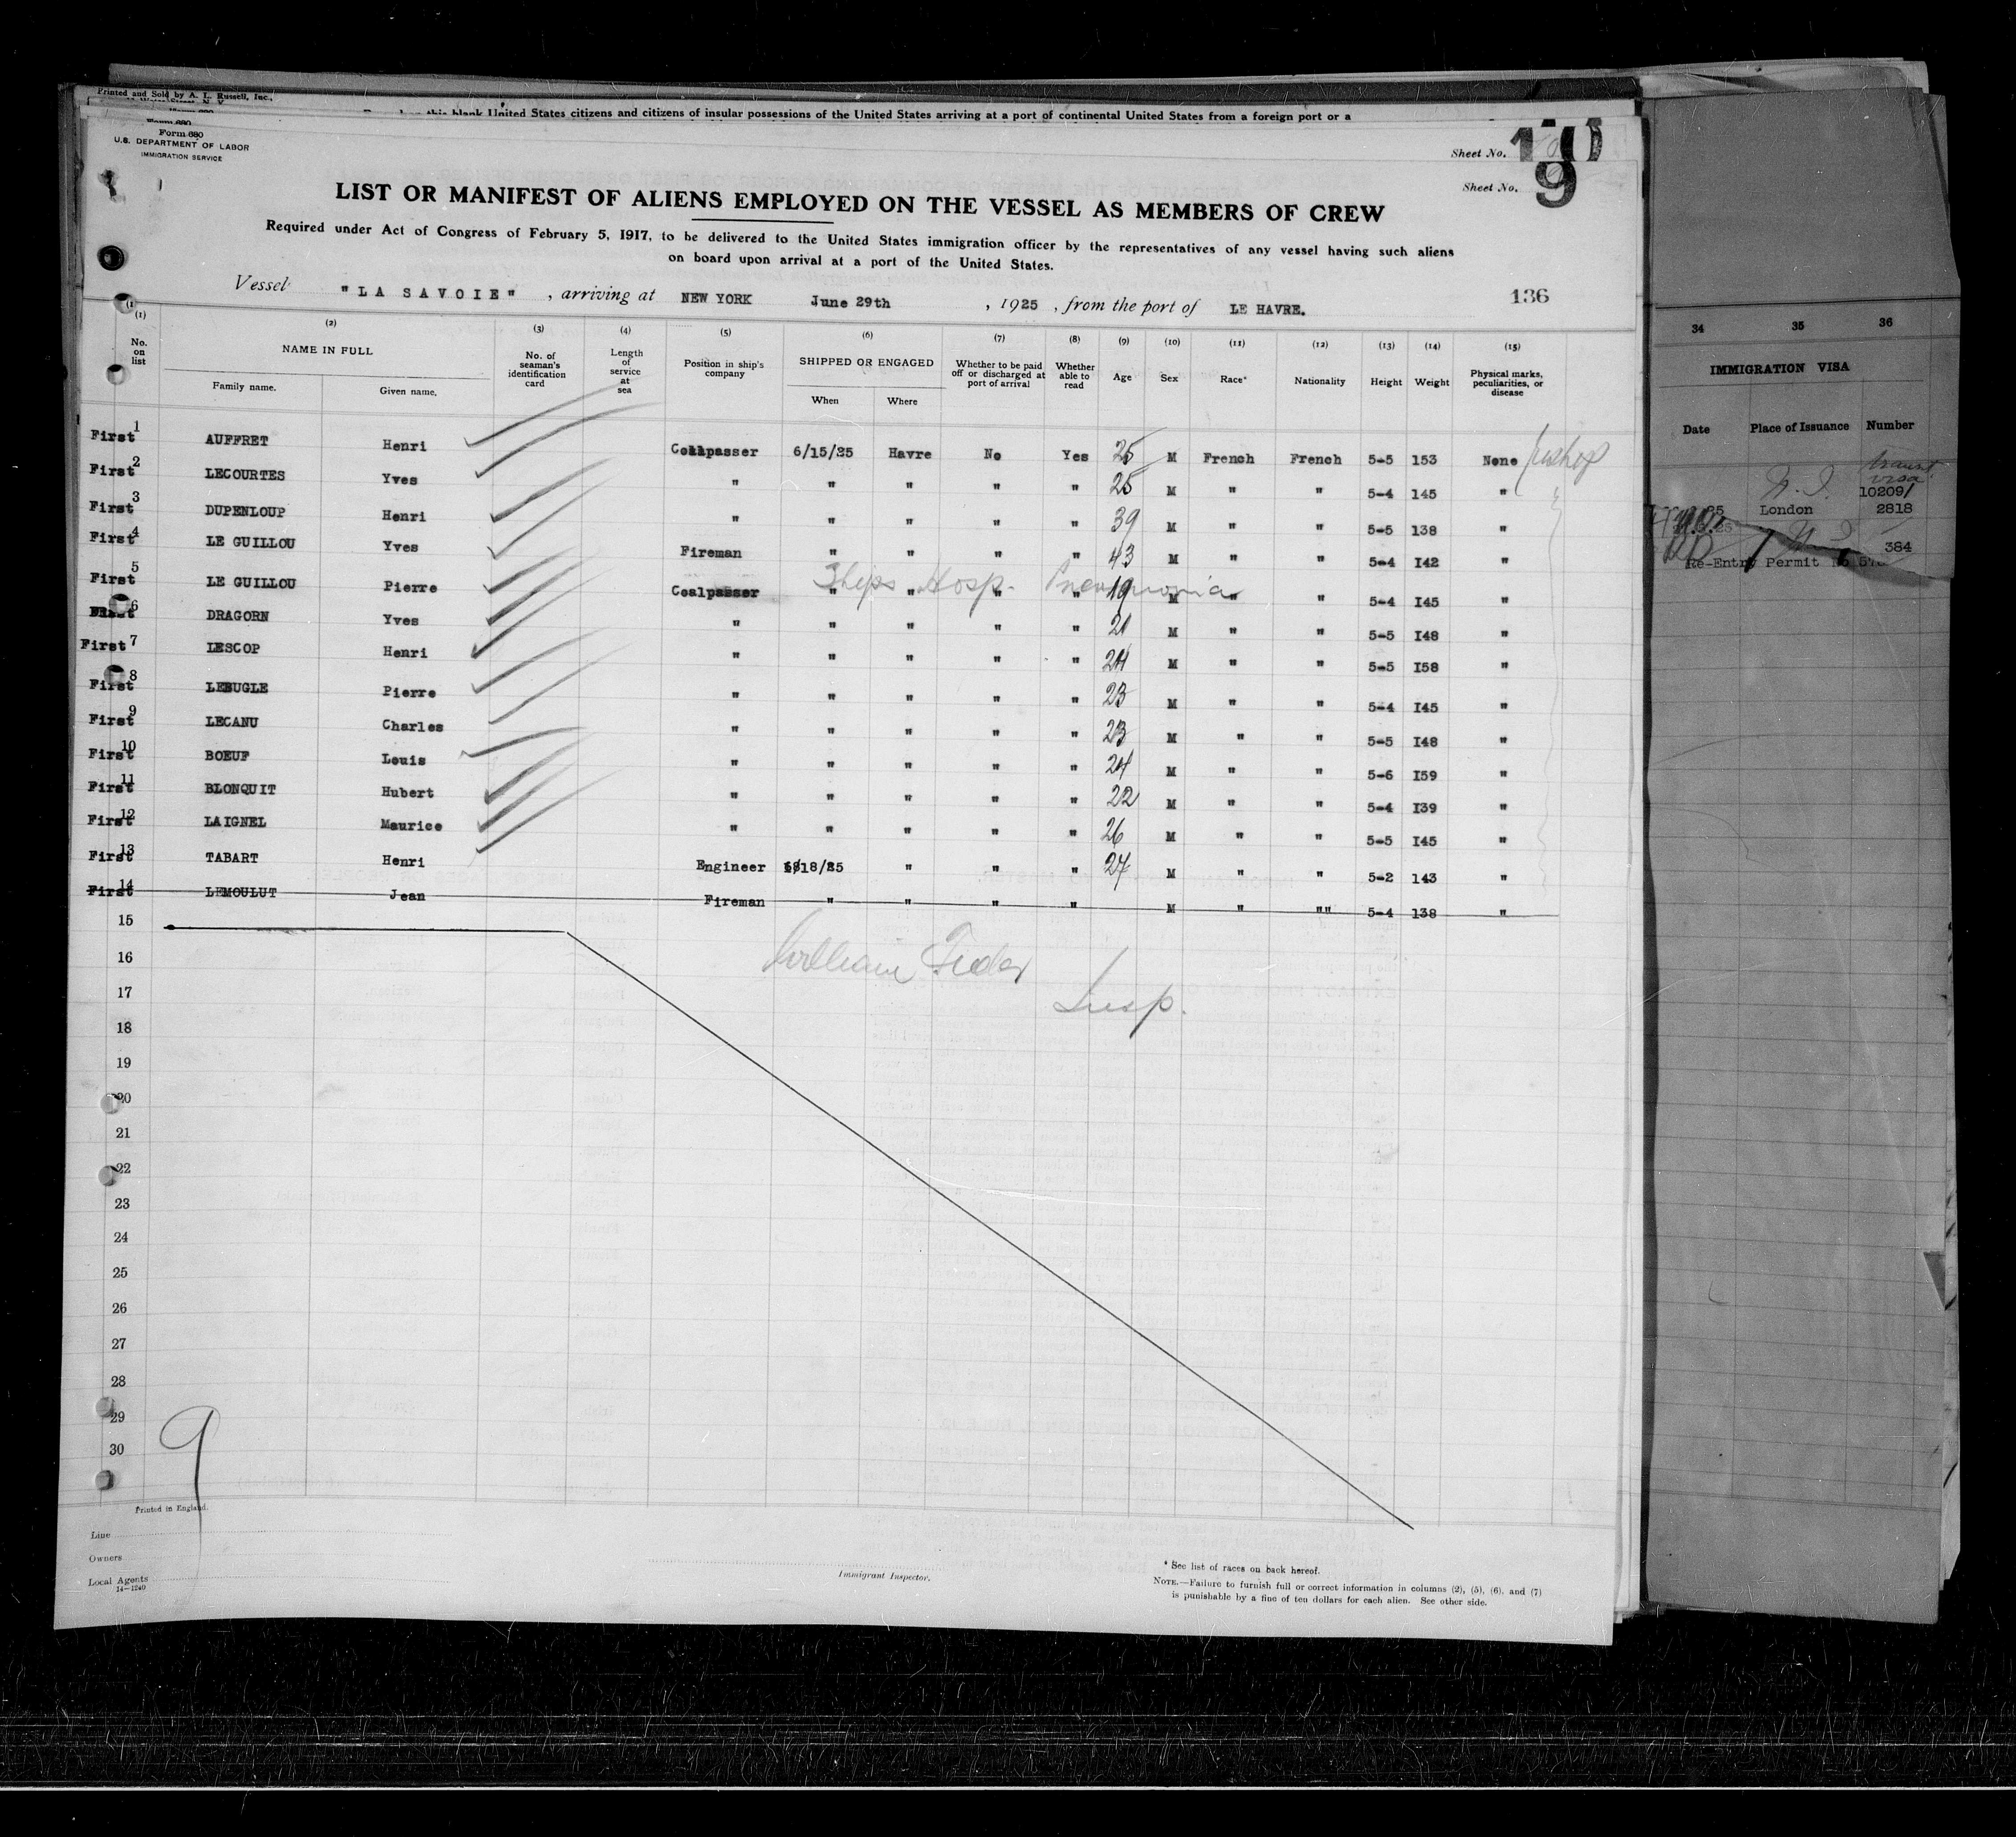 Printed and Sold by A. L. Russell, Inc.,
United States citizens and citizens of insular possessions of the United States arriving at a port of continental United States from a foreign port or a
Form 680
U.S. DEPARTMENT OF LABOR
IMMIGRATION SERVICE
Sheet No.
Sheet No. 9
LIST OR MANIFEST OF ALIENS EMPLOYED ON THE VESSEL AS MEMBERS OF CREW
Required under Act of Congress of February 5, 1917, to be delivered to the United States immigration officer by the representatives of any vessel having such aliens
on board upon arrival at a port of the United States.
Vessel "LA SAVOIE", arriving at NEW YORK June 29th, 1925, from the port of LE HAVRE. 136
(1) (2) (3) (4) (5) (6) (7) (8) (9) (10) (11) (12) (13) (14) (15)
No. on list NAME IN FULL Family name. Given name. No. of seaman's identification card Length of service at sea Position in ship's company SHIPPED OR ENGAGED When Where Whether to be paid off or discharged at port of arrival Whether able to read Age Sex Race* Nationality Height Weight Physical marks, peculiarities, or disease
First 1 AUFFRET Henri Coalpasser 6/15/25 Havre No Yes 25 M French French 5-5 153 None
First 2 LECOURTES Yves " " " " " 25 M " " 5-4 145 "
First 3 DUPENLOUP Henri " " " " " 39 M " " 5-5 138 "
First 4 LE GUILLOU Yves Fireman " " " " 43 M " " 5-4 I42 "
Ships Hosp. Pneumonia
First 5 LE GUILLOU Pierre Coalpasser " " " " 19 M " " 5-4 I45 "
First 6 DRAGORN Yves " " " " " 21 M " " 5-5 I48 "
First 7 LESCOP Henri " " " " " 24 M " " 5-5 I58 "
First 8 LEBUGLE Pierre " " " " " 23 M " " 5-4 I45 "
First 9 LECANU Charles " " " " " 23 M " " 5-5 I48 "
First 10 BOEUF Louis " " " " " 24 M " " 5-6 I59 "
First 11 BLONQUIT Hubert " " " " " 22 M " " 5-4 I39 "
First 12 LAIGNEL Maurice " " " " " 26 M " " 5-5 I45 "
First 13 TABART Henri Engineer 6/18/25 " " " 27 M " " 5-2 143 "
First 14 LEMOULUT Jean Fireman " " " " M " "" 5-4 138 "
15
16
William
17
Insp.
18
19
20
21
22
23
24
25
26
27
28
29
30
9
Printed in England.
Line
Owners
Local Agents
14—1240
Immigrant Inspector.
* See list of races on back hereof.
NOTE.—Failure to furnish full or correct information in columns (2), (5), (6), and (7)
is punishable by a fine of ten dollars for each alien. See other side.
34 35 36
IMMIGRATION VISA
Date Place of Issuance Number
transit
visa
10209
London 2818
384
Re-Entry Permit No